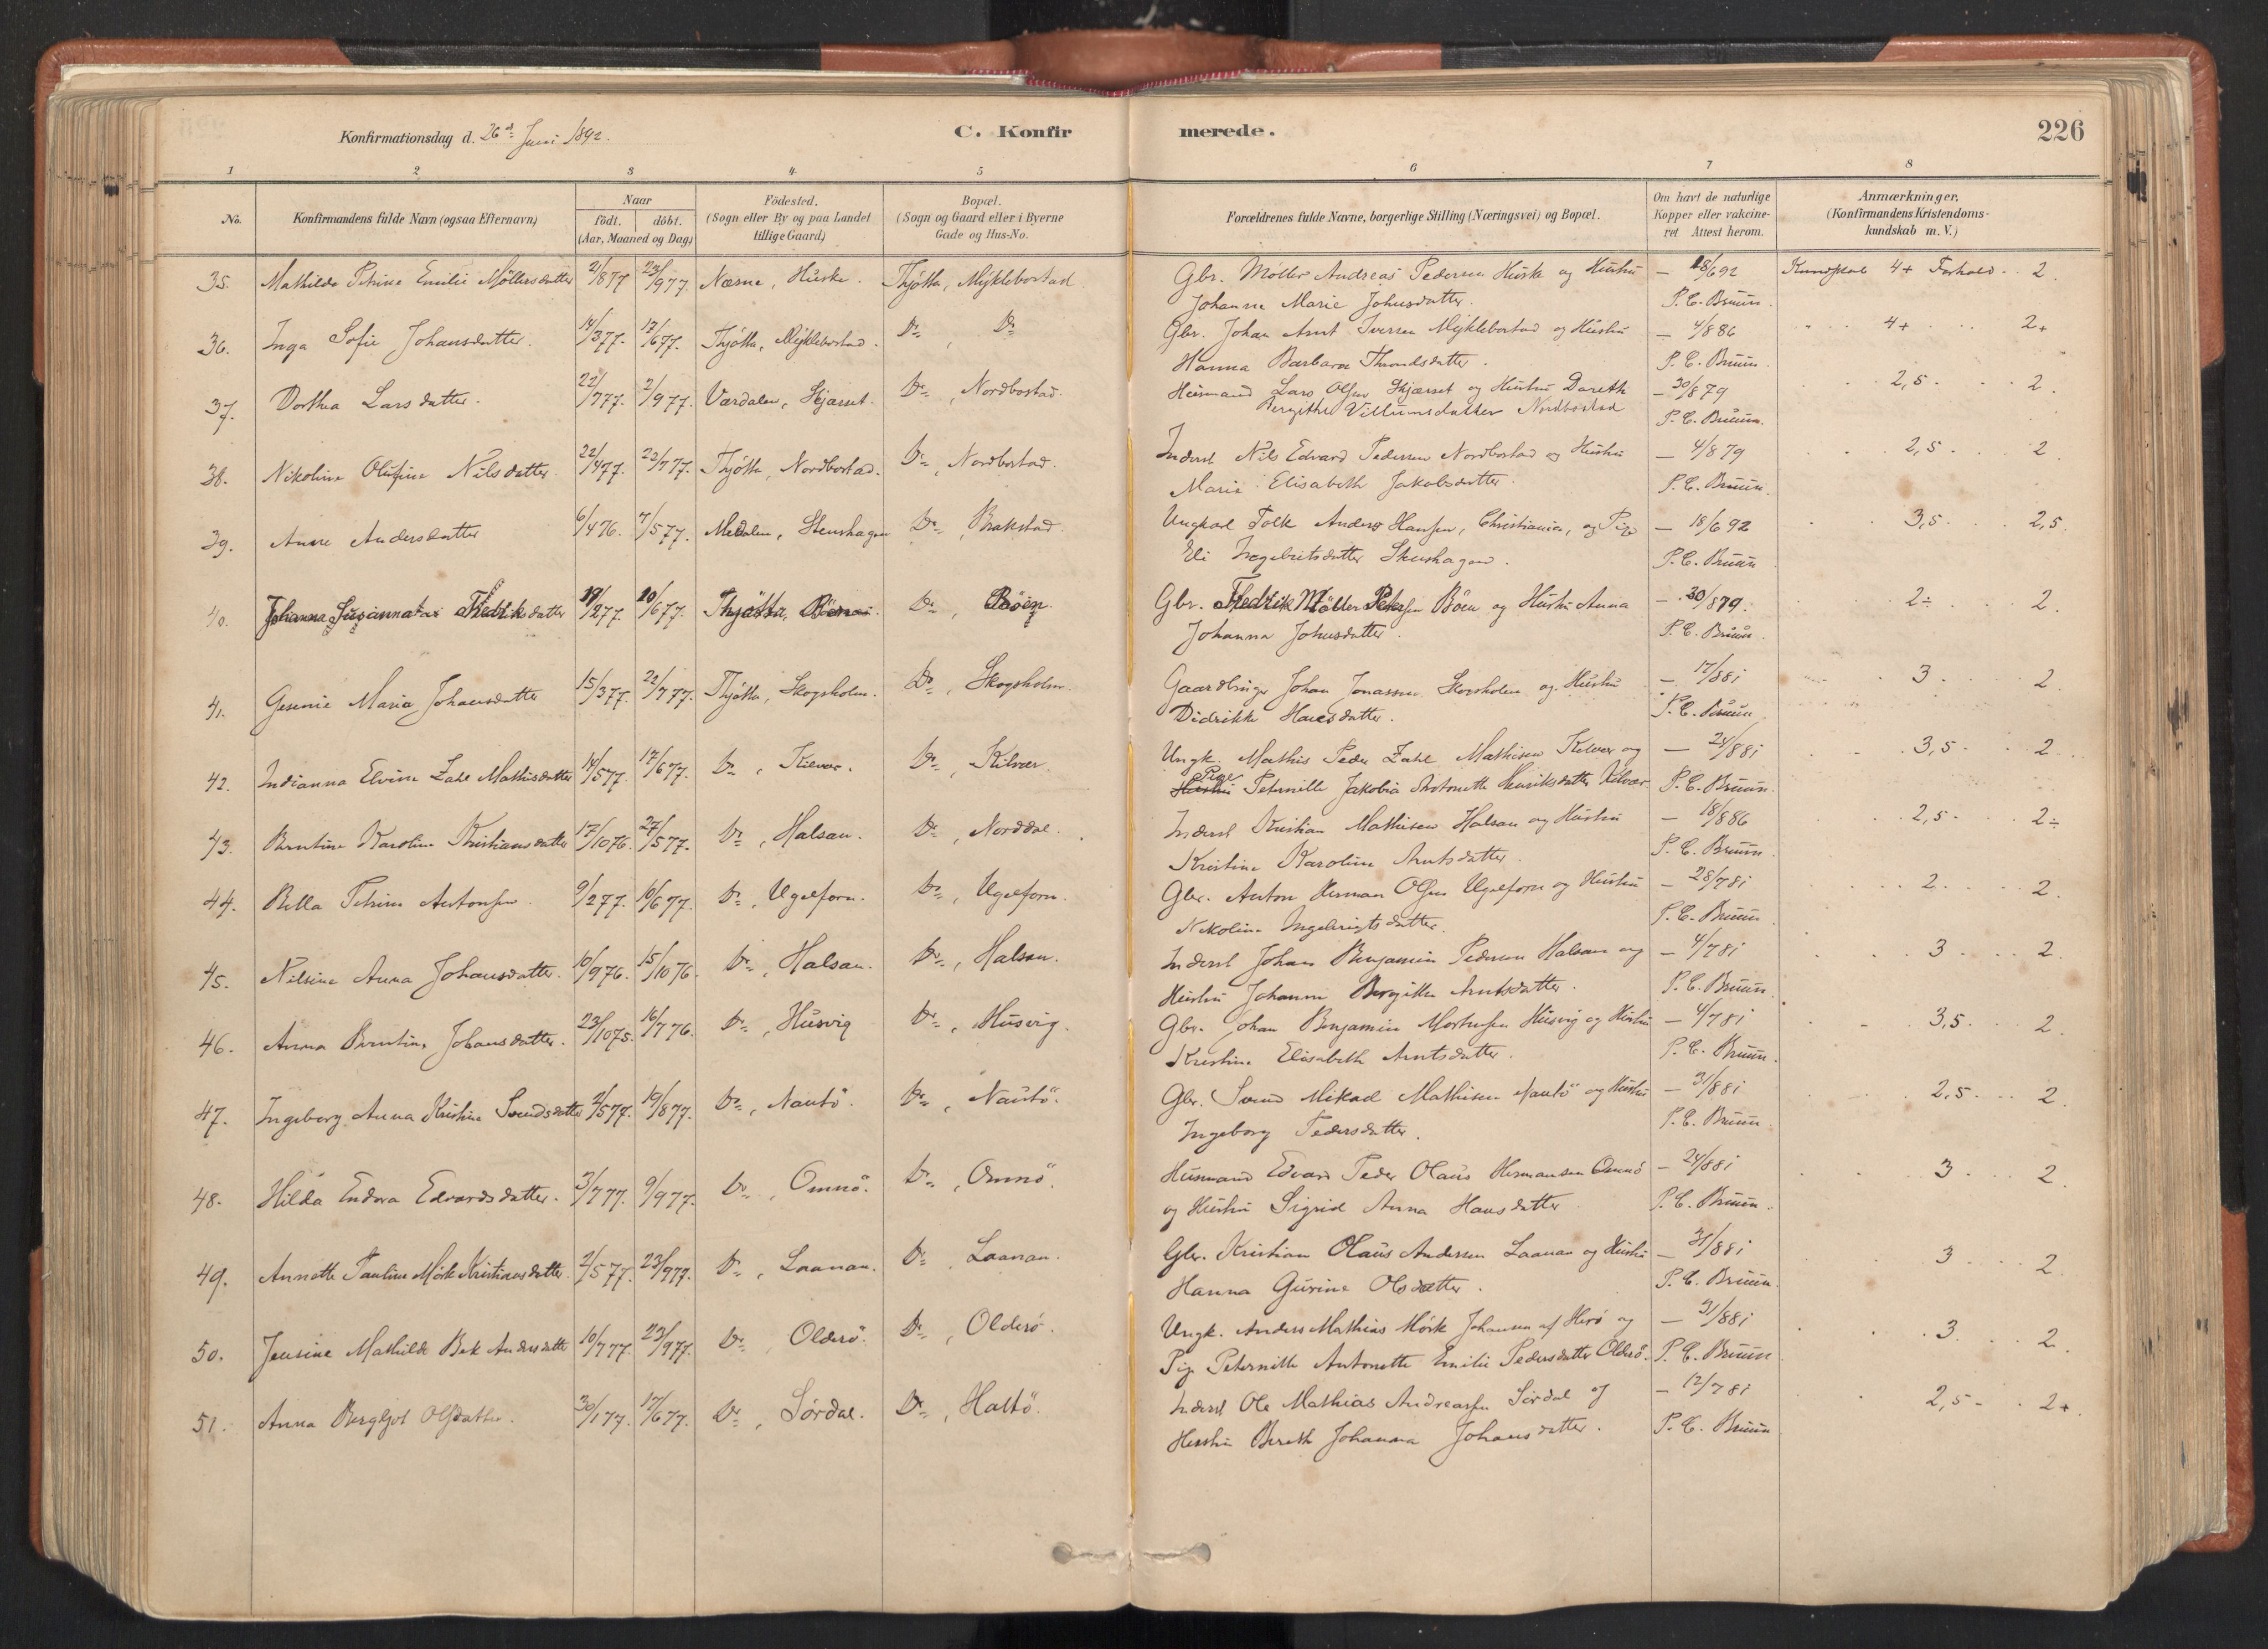 Konfirmationsdag d. 26d Juni 1892. C. Konfirmerede. 226
1 2 3 4 5 6 7 8
No. Konfirmandens fulde Navn (ogsaa Efternavn) Naar födt. döbt. (Aar, Maaned og Dag) Födested. (Sogn eller By og paa Landet tillige Gaard) Bopæl. (Sogn og Gaard eller i Byerne Gade og Hus-No. Forældrenes fulde Navne, borgerlige Stilling (Næringsvei) og Bopæl. Om havt de naturlige Kopper eller vakcineret Attest herom. Anmærkninger. (Konfirmandens Kristendomskundskab m. V.)
35. Mathilde Petrine Emilie Möllersdatter 2/877 23/977. Næsne, Huske. Thjötta, Myklebostad Gbr. Möller Andreas Pedersen Huske og Hustru — 18/692 Kundskab 4+ Forhold . . 2.
Johanne Marie Johnsdatter. P. C. Bruun.
36. Inga Sofie Johansdatter. 14/377. 17/677. Thjötta, Myklebostad. Do, Do Gbr. Johan Arnt Iversen Myklebostad og Hustru — 4/886 4+ 2+
Hanna Barbara Throndsdatter. P. C. Bruun.
37. Dorthea Larsdatter. 22/777. 2/977. Værdalen, Do, Nordbostad. Husmand Lars Olsen og Hustru Dareth — 30/879 2,5. 2.
Bergithe Villumsdatter Nordbostad P. C. Bruun.
38. Nikoline Olufine Nilsdatter. 22/477. 22/777. Thjötta, Nordbostad. Do, Nordbostad. Inderst Nils Edvard Pedersen Nordbostad og Hustru — 4/879 2,5. 2.
Marie Elisabeth Jakobsdatter. P. C. Bruun.
39. Anne Andersdatter 6/476. 7/577. Medalen, Stenshagen Do, Brakstad. Ungkarl Tolk Anders Hansen, Christiania, og Pige — 18/692 3,5. 2,5.
Eli Ingebritsdatter Stenshagen. P. C. Bruun
40. Johanna Susanna Fredriksdatter 19/277. 10/677. Thjötta, Do, Böen. Gbr. Fredrik Möller Petersen Böen og Hustru Anna — 30/879. 2÷ 2.
Johanna Johnsdatter. P. C. Bruun.
41. Gesenie Maria Johansdatter 15/377. 22/777. Thjötta, Skogsholm. Do, Skogsholm. Gaardbruger Johan Jonassen Skogsholm og Hustru — 17/881 3. 2.
Didrikke Hansdatter. P. C. Bruun
42. Indianna Elvine Zahl Mathisdatter 14/577. 17/677. Do, Kilvær. Do, Kilvær. Ungk. Mathis Peder Zahl Mathisen Kilvær og — 24/881 3,5. 2.
Pige Peternille Jakobia Antonette Henriksdatter Kilvær P. C. Bruun.
43. Berntine Karoline Kristiansdatter 17/1076. 27/577. Do, Halsan. Do, Norddal. Inderst Kristian Mathisen Halsan og Hustru — 18/886 2,5. 2÷
Kristine Karoline Arntsdatter. P. C. Bruun.
44. Bella Petrine Antonsen. 9/277. 10/677. Do, Ugelforn. Do, Ugelforn. Gbr. Anton Herman Olsen Ugelforn og Hustru — 28/781 2. 2.
Nikoline Ingebrigtsdatter. P. C. Bruun
45. Nilsine Anna Johansdatter. 10/976. 15/1076. Do, Halsan. Do, Halsan. Inderst Johan Benjamin Pedersen Halsan og — 4/781 3. 2.
Hustru Johanne Bergitte Arntsdatter. P. C. Bruun.
46. Anna Berntine Johansdatter. 23/1075. 16/776. Do, Husvig Do, Husvig. Gbr. Johan Benjamin Mortensen Husvig og Hustru — 4/781 3,5. 2.
Kristine Elisabeth Arntsdatter. P. C. Bruun.
47. Ingeborg Anna Kristine Svendsdatter 2/577. 19/877. Do, Nautö. Do, Nautö. Gbr. Svend Mikael Mathisen Nautö og Hustru — 31/881 2,5. 2.
Ingeborg Pedersdatter. P. C. Bruun
48. Hilda Endora Edvardsdatter. 3/777. 9/977. Do, Omnö. Do, Omnö. Husmand Edvard Peder Olaus Hermansen Omnö — 24/881 3. 2.
og Hustru Sigrid Anna Hansdatter P. C. Bruun.
49. Annette Pauline Mörk Kristiansdatter. 2/577. 23/977. Do, Laanan. Do, Laanan. Gbr. Kristian Olaus Andersen Laanan og Hustru — 31/881 3 2.
Hanna Gurine Olsdatter. P. C. Bruun.
50. Jensine Mathilde Bek Andersdatter 10/777. 23/977. Do, Olderö. Do, Olderö. Ungk. Anders Mathias Mörk Johansen af Herö og — 31/881 3. 2.
Pige Peternille Antonette Emilie Pedersdatter Olderö. P. C. Bruun
51. Anna Bergljot Olsdatter. 30/177. 17/677. Do, Sördal. Do, Haltö. Inderst Ole Mathias Andreassen Sördal og — 12/781 2,5. 2+.
Hustru Bereth Johanna Johansdatter. P. C. Bruun